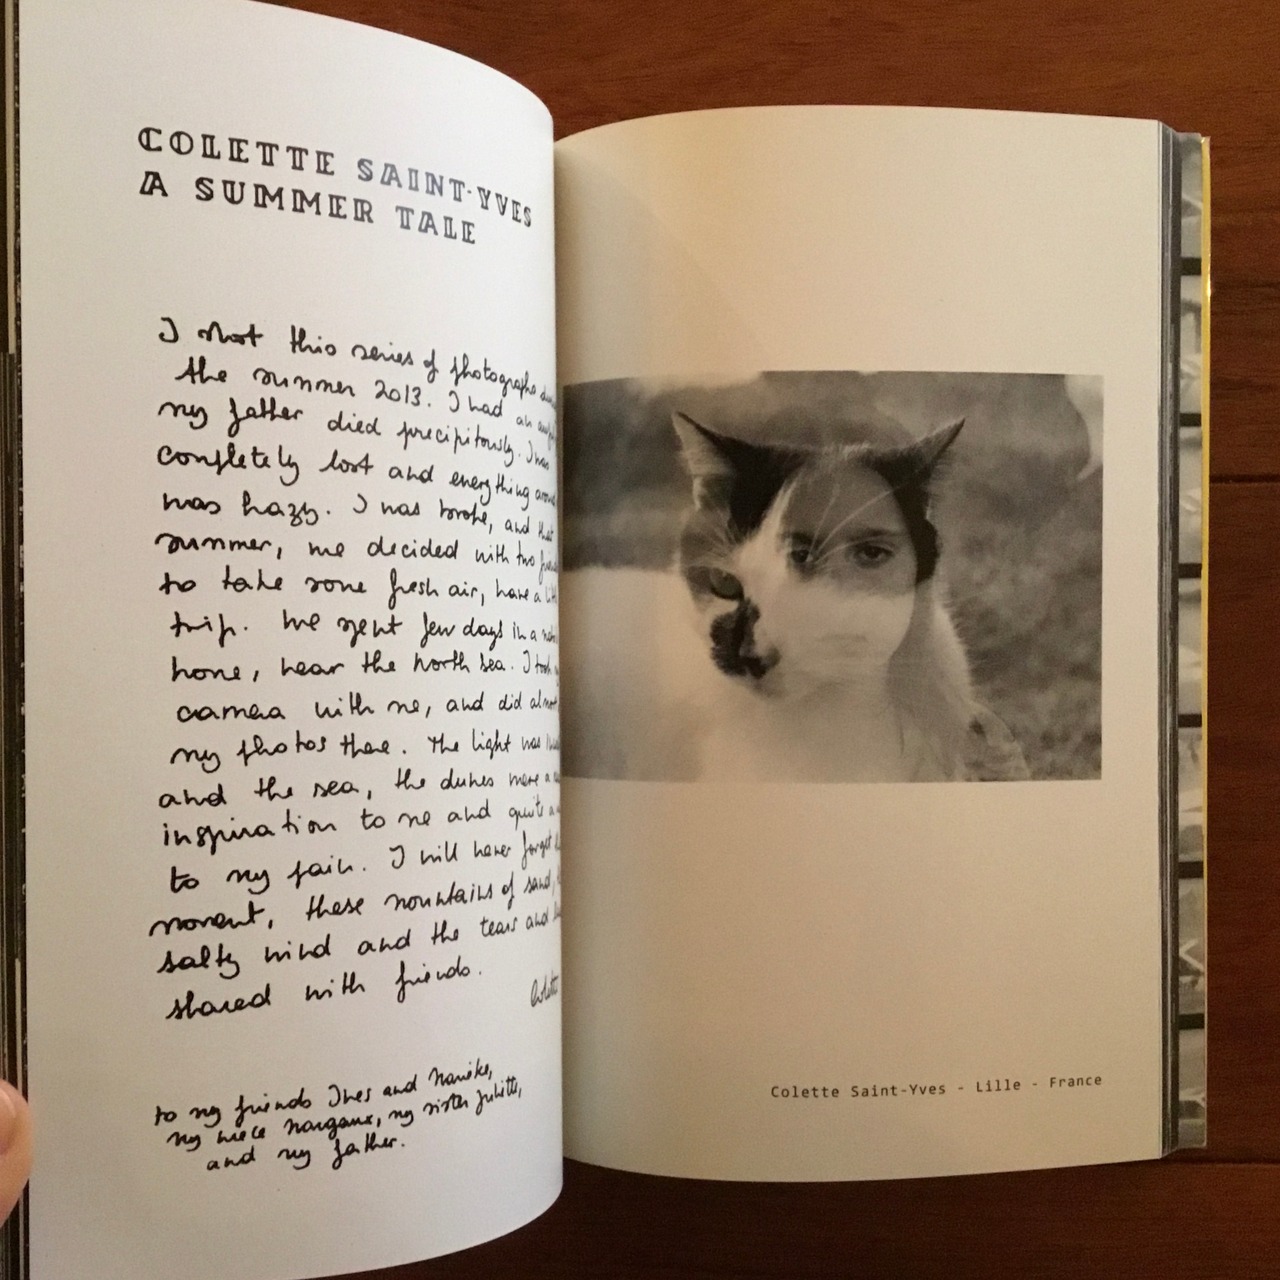 COLETTE SAINT-YVES
A SUMMER TALE
I shot this series of photographs
the summer 2013. I had an
my father died precipitously. I was
completely lost and everything
was hazy. I was broke, and that
summer, we decided with two
to take some fresh air, have a
trip. We spent few days in a
home, near the north sea. I took
camera with me, and did
my photos there. The light was
and the sea, the dunes were a
inspiration to me and quite a
to my pain. I will never forget
moment, these mountains of sand,
salty wind and the tears and
shared with friends.
Colette
to my friends Ines and
my niece Margaux, my sister Juliette,
and my father.
Colette Saint-Yves - Lille - France